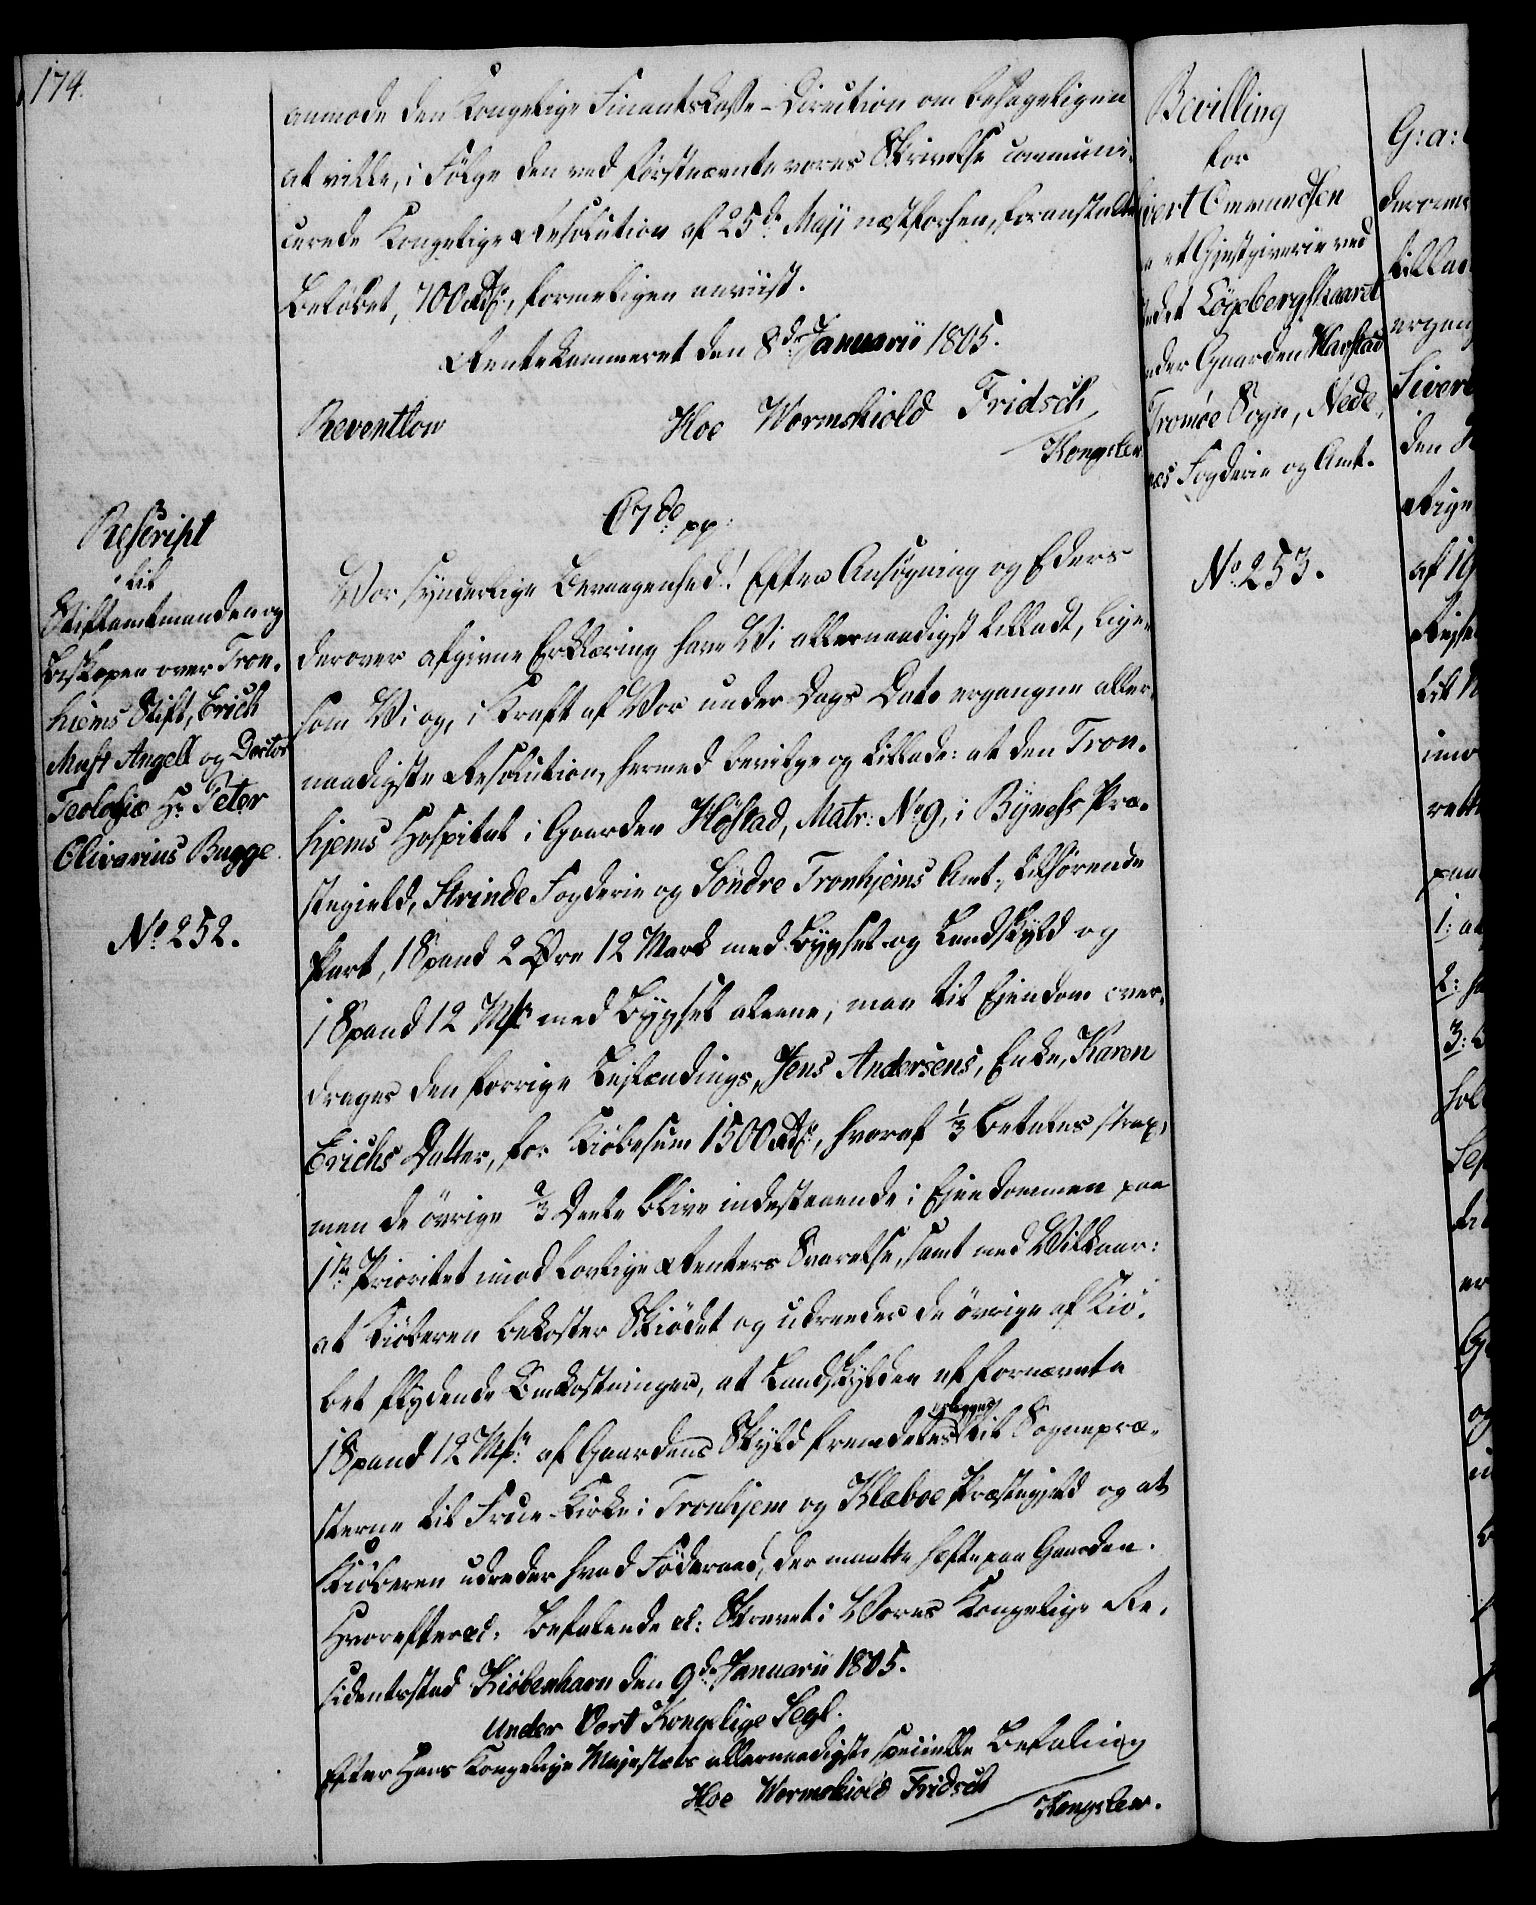 174.
anmode den Kongelige Finantskasse-Direction om behageligen
at ville, i Følge den ved førstnævnte vores Skrivelse communi-
cerede Kongelige Resolution af 25de Maji næstforhen, foranstalte
Beløbet, 700 Rdr, formeligen anviist.
Rentekammeret den 8de Januarii 1805.
Reventlow Hoe Wormskiold Fridsch
Kongslew
Rescript
til
Stiftamtmanden og
Biskopen over Tron-
hiems Stift, Erich
Must Angell og Doctor
Teologiæ Hr Peter
Olivarius Bugge.
No 252.
C7de pp:
Vor synderlige Bevaagenhed! Efter Ansøgning og Eders
derover afgivne Erklæring have Vi allernaadigst tilladt, lige-
som Vi og, i Kraft af Vor under Dags Dato ergangne aller-
naadigste Resolution, hermed bevilge og tillade: at den Tron-
hjems Hospital i Gaarden Høstad, Matr: No 9, i Bynesss Præ-
stegield, Strinde Fogderie og Søndre Tronhjems Amt, tilhørende
Part, 1 Spand 2 Øre 12 Mark med Bygsel og Landskyld og
1 Spand 12 Mk med Bygsel alene, maa til Eiendom over-
drages den forrige Leilændings, Jens Andersens, Enke, Karen
Erichs Datter, for Kiøbesum 1500 Rdr, hvoraf 1/3 betales strax,
men de øvrige 2/3 Deele blive indestaaende i Eiendommen paa
1ste Prioritet imod lovlige Renters Svarelse, samt med Vilkaar:
at Kiøberen bekoster Skiødet og udreeder de øvrige af Kiø-
bet flydende Omkostninger, at Landskylden af fornævnte
1 Spand 12 Mk af Gaardens Skyld fremdeles erlægges til Sognepræ-
sterne til Frue-Kirke i Tronhjem og Klæboe Præstegield og at
Kiøberen udreder hvad Føderaad, der maatte hæfte paa Gaarden.
Hvorefter etc. Befalende etc: Skrevet i Vores Kongelige Re-
sidentsstad Kiøbenhavn den 9de Januarii 1805.
Under Vort Kongelige Segl.
Efter Hans Kongelige Majestæts allernaadigste specielle Befaling
Hoe Wormskiold Fridsch
Kongslew.
Bevilling
for
Omundsen
et Gjestgiverie ved
Løgebergskaaret
Gaarden Harstad
Tromøe Sogn, Nede-
næs Fogderie og Amt.
No 253.
G: a:
derom
tillad
ergang
Siver
den
af 19
1: at
2:
3: